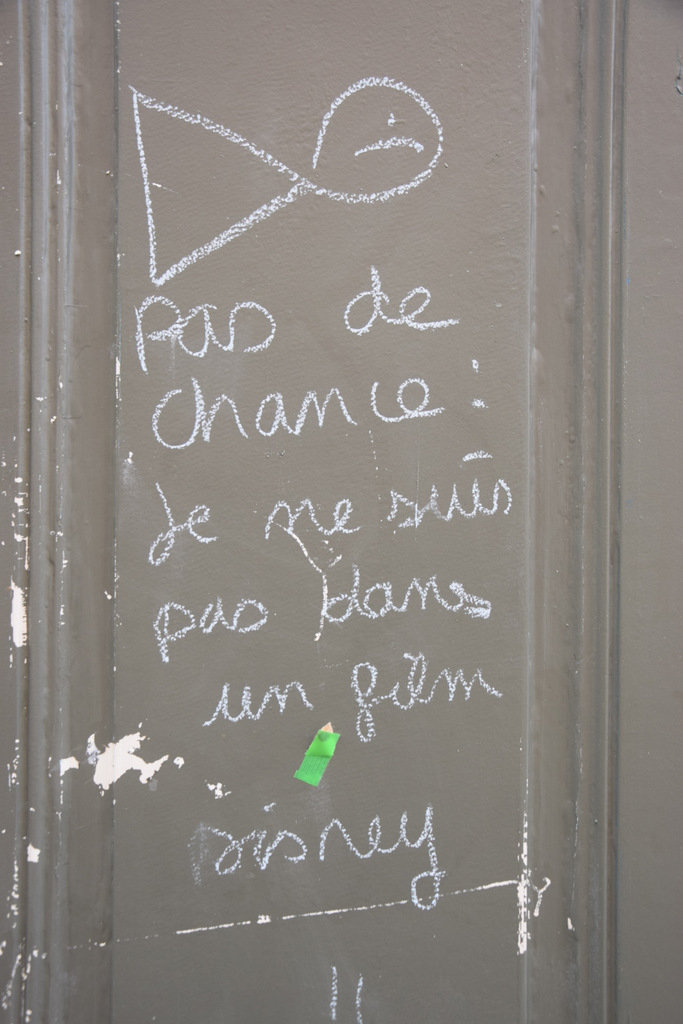 pas de
chance :
je ne suis
pas dans
un film
disney